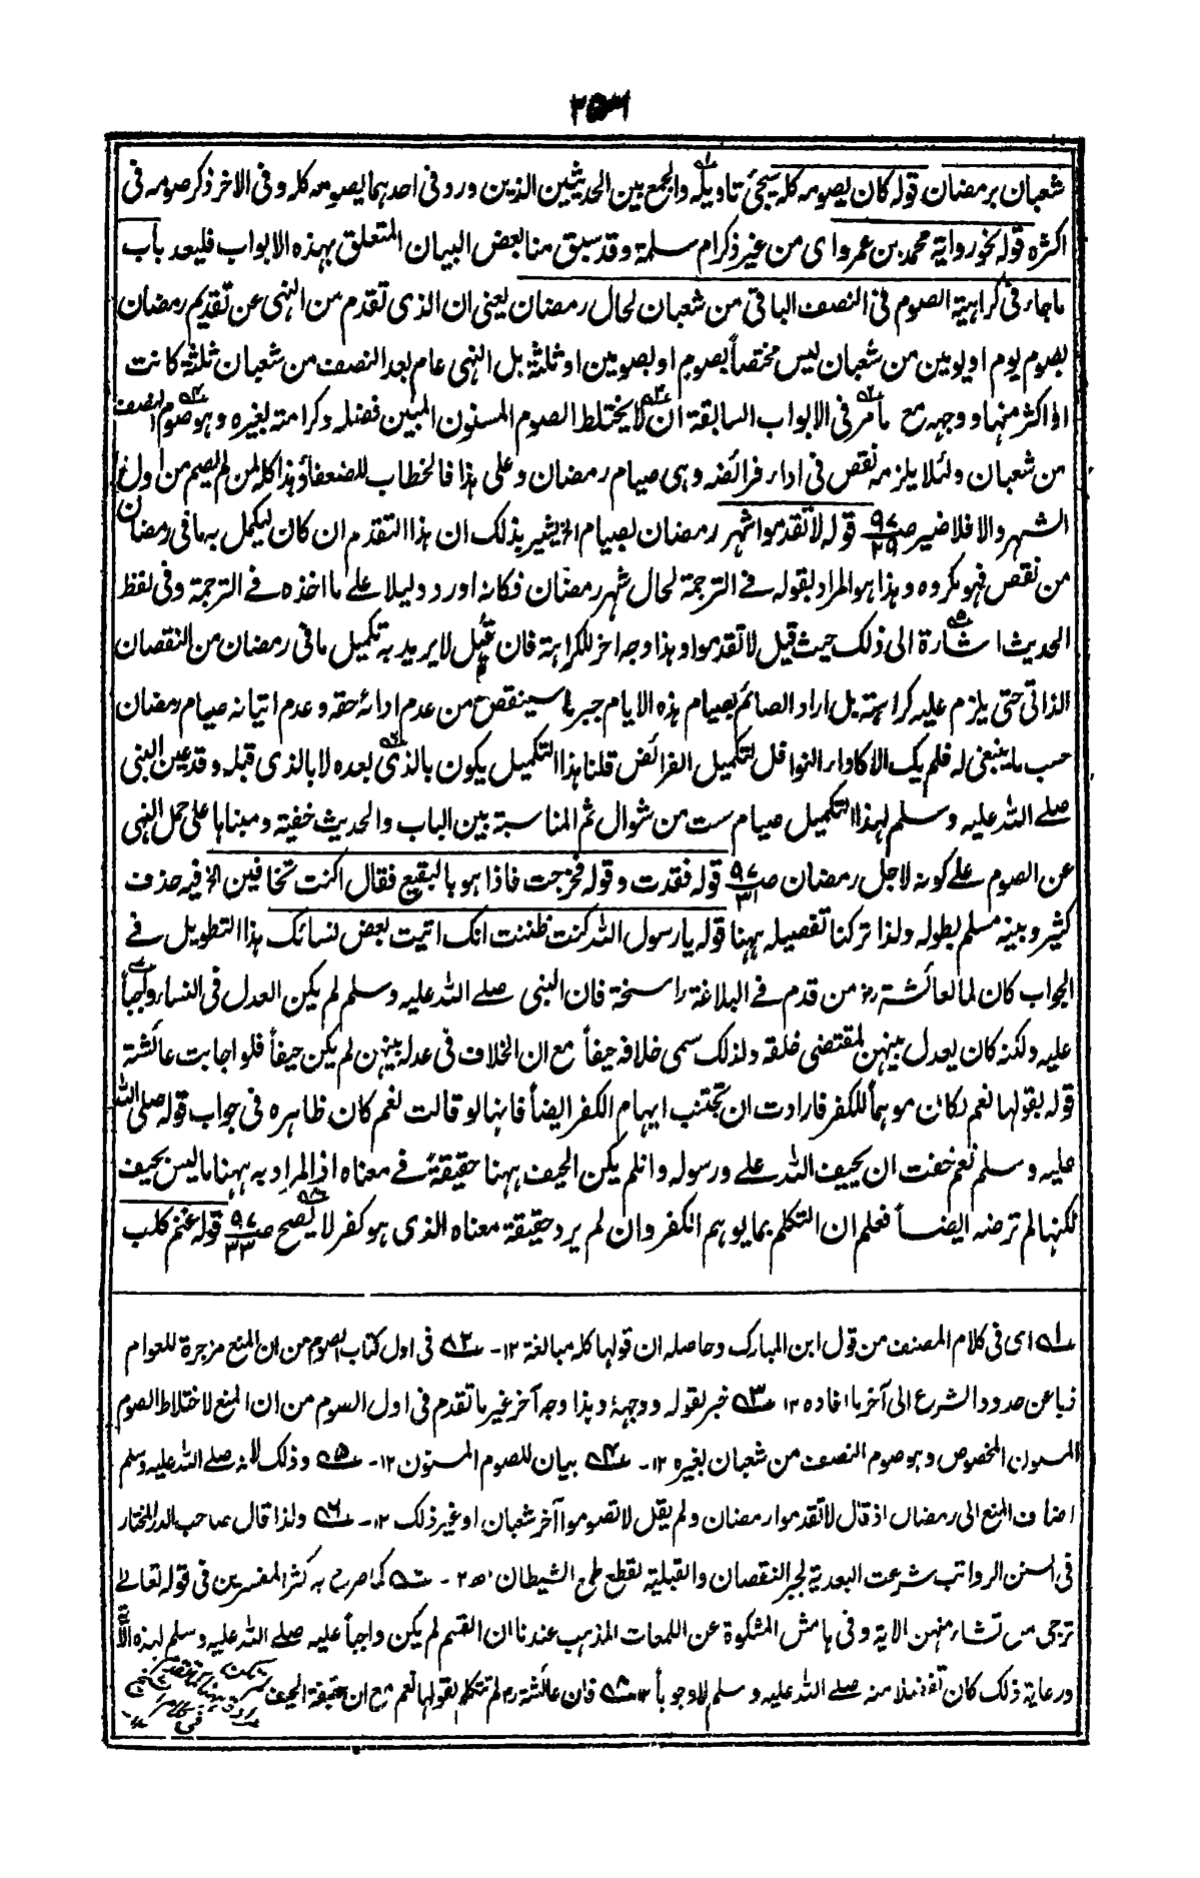 ٢٥٦
شعبان برمضان قوله كان يصومه كله سيجئ تاويله والجمع بين الحديثين الذين ورد فى احدهما يصومه كله وفى الاخر ذكر صومه فى
اكثره قوله نحو رواية محمد بن عمرو اى من غير ذكر ام سلمة وقد سبق منا بعض البيان المتعلق بهذه الابواب فليعد باب
ما جاء فى كراهية الصوم فى النصف الباقى من شعبان لحال رمضان يعنى ان الذى تقدم من النهى عن تقديم رمضان
بصوم يوم او يومين من شعبان ليس مختصاً بصوم او بصومين او ثلثة بل النهى عام بعد النصف من شعبان ثلثة كانت
او اكثر منها ووجهه مع ما مر فى الابواب السابقة ان لا يختلط الصوم المسنون المبين فضله وكرامته بغيره وهو صوم النصف
من شعبان ولئلا يلزمه نقص فى اداء فرائضه وهى صيام رمضان وعلى هذا فالخطاب للضعفاء وهذا كله لمن لم يصم من اول
الشهر والا فلا ضير ص ٩٧ ٢٩ قوله لا تقدموا شهر رمضان بصيام الخ يشير بذلك ان هذا التقدم ان كان ليكمل به ما فى رمضان
من نقص فهو مكروه وهذا هو المراد بقوله فى الترجمة لحال شهر رمضان فكانه اورد دليلا على ما اخذه فى الترجمة وفى لفظ
الحديث اشارة الى ذلك حيث قيل لا تقدموا وهذا وجه اخر للكراهة فان قيل لا يريد به تكميل ما فى رمضان من النقصان
الذاتى حتى يلزم عليه كراهته بل اراد الصائم بصيام هذه الايام جبر ما سينقص من عدم ادائه حقه وعدم اتيانه صيام رمضان
حسب ما ينبغى له فلم يك الا كاداء النوافل لتكميل الفرائض قلنا هذا التكميل يكون بالذى بعده لا بالذى قبله وقد عين النبى
صلے الله عليه وسلم لهذا التكميل صيام ست من شوال ثم المناسبة بين الباب والحديث خفية ومبناها على حمل النهى
عن الصوم على كونه لاجل رمضان ص ٩٧ ٣١ قوله فقدت وقوله فخرجت فاذا هو بالبقيع فقال اكنت تخافين الخ فيه حذف
كثير وبينه مسلم بطوله ولذا تركنا تفصيله ههنا قوله يا رسول الله كنت ظننت انك اتيت بعض نسائك هذا التطويل فى
الجواب كان لما لعائشة رض من قدم فى البلاغة راسخة فان النبى صلے الله عليه وسلم لم يكن العدل فى النساء واجباً
عليه ولكنه كان يعدل بينهن لمقتضى خلقه ولذلك سمى خلافه حيفاً مع ان الخلاف فى عدله بينهن لم يكن حيفاً فلو اجابت عائشة
قوله بقولها نعم لكان موهماً للكفر فارادت ان تجتنب ايهام الكفر ايضاً فانها لو قالت نعم كان ظاهره فى جواب قوله صلى الله
عليه وسلم نعم خفت ان يحيف الله على ورسوله وان لم يكن الحيف ههنا حقيقة فى معناه اذ المراد به ههنا ما ليس بحيف
لكنها لم ترضه ايضاً فعلم ان التكلم بما يوهم الكفر وان لم يرد حقيقة معناه الذى هو كفر لا يصح ص ٩٧ ٣٣ قوله غنم كلب
١ه اى فى كلام المصنف من قول ابن المبارك وحاصله ان قولها كله مبالغة ١٢- ٢ه فى اول كتاب الصوم من ان المنع مزجرة للعوام
ذبا عن حدود الشرع الى آخر ما افاده ١٢ ٣ه خبر لقوله ووجهه وهذا وجه آخر غير ما تقدم فى اول الصوم من ان المنع لاختلاط الصوم
المسنون المخصوص وهو صوم النصف من شعبان بغيره ١٢- ٤ه بيان للصوم المسنون ١٢- ٥ه وذلك لانه صلے الله عليه وسلم
اضاف المنع الى رمضان اذ قال لا تقدموا رمضان ولم يقل لا تصوموا آخر شعبان او غير ذلك ١٢- ٦ه ولذا قال صاحب الدر المختار
فى السنن الرواتب شرعت البعدية لجبر النقصان والقبلية لقطع طمع الشيطان اھ ١٢- ٧ه كما صرح به كثر المفسرين فى قوله تعالے
ترجى من تشاء منهن الاية وفى هامش المشكوة عن اللمعات المذهب عندنا ان القسم لم يكن واجباً عليه صلے الله عليه وسلم لهذه الآية
ورعاية ذلك كان تفضلا منه صلے الله عليه وسلم لا وجوباً ١٢ ٨ه فان عائشة رض لم تتكلم بقولها نعم مع ان حقيقة الحيف